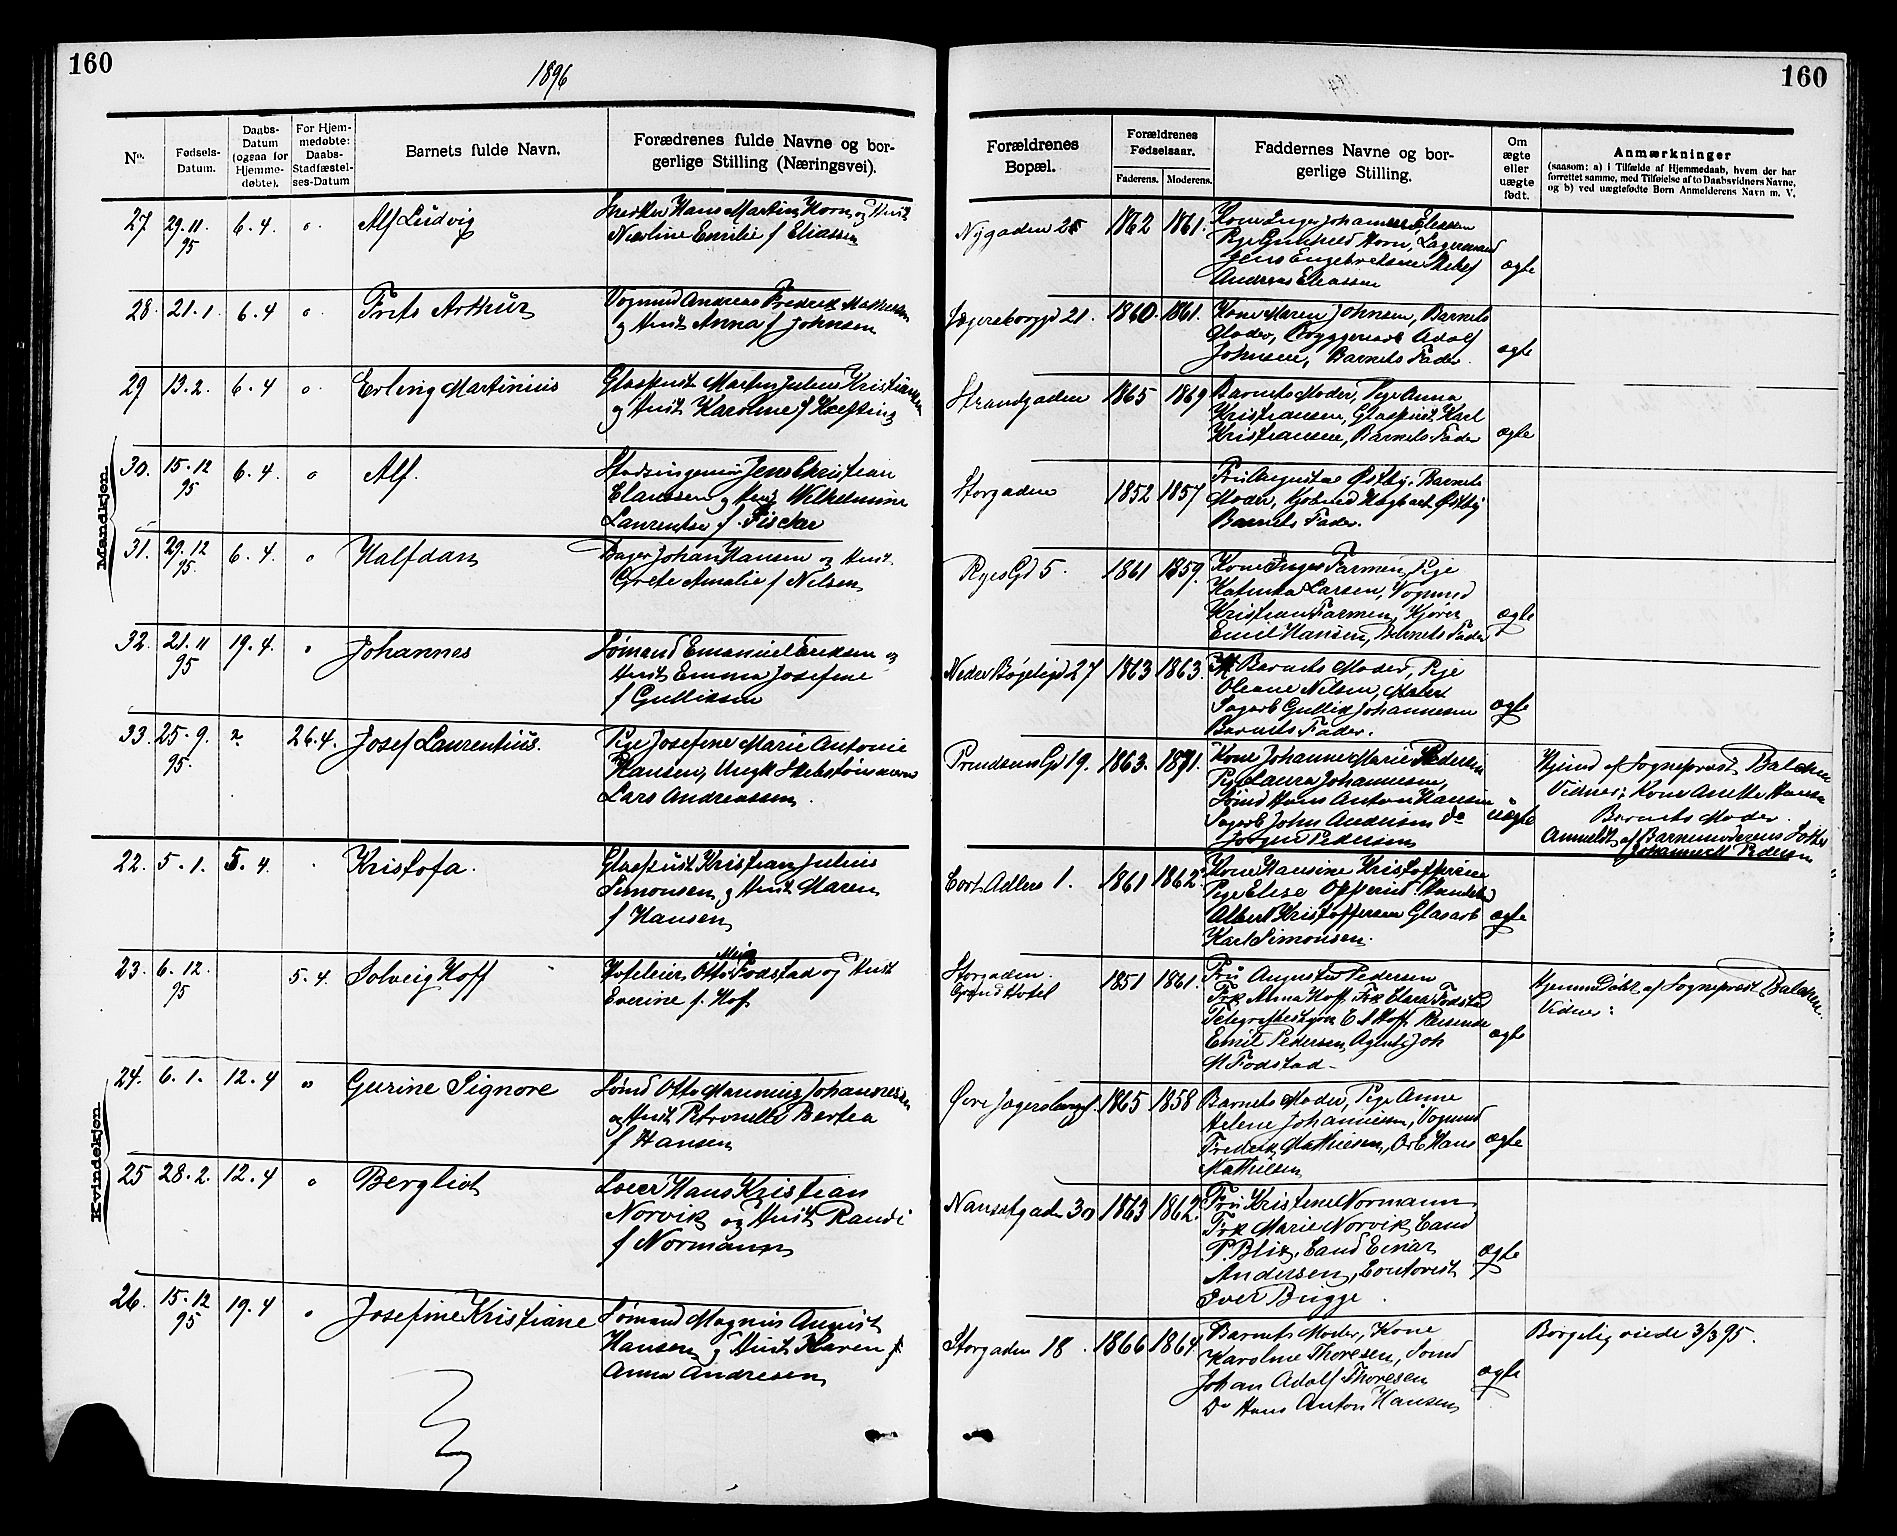 160
1896
No.
Fødsels-
Datum.
Daabs-
Datum
(ogsaa for
Hjemme-
døbte).
For Hjem-
medøbte:
Daabs-
Stadfæstel-
ses-Datum
Barnets fulde Navn.
Forædrenes fulde Navne og bor-
gerlige Stilling (Næringsvei).
Mandkjøn.
27 29.11 95 6.4. Alf Ludvig
Snedker Hans Martin Horn og Hust
Nicoline Emilie f Eliassen
28. 21.1 6.4 Frits Arthur
Vognmd Andreas Fredrik Mathiesen
og Hust Anna f Johnsen
29 13.2. 6.4 Erling Martinius
Glaspust Martin Julius Kristiansen
og Hust Karoline f Krefting
30. 15.12 95 6.4. Alf.
Stadsingeniør Jens Christian
Claussen og Hust Wilhelmine
Laurentse f. Fischer
31. 29.12 95. 6.4. Halfdan
Bager Johan Hansen og Hust.
Grete Amalie f Nilsen
32. 21.11 95 19.4. Johannes
Sømand Emanuel Eriksen og
Hust Emma Josefine
f Gulliksen
33. 25.9. 95. 26.4. Josef Laurentius.
Pige Josefine Marie Antonie
Hansen, Ungk Skibstømmerm
Lars Andreassen.
Kvindekjøn
22. 5.1. 5.4. Kristofa.
Glaspust Kristian Julius
Simonsen og Hust Maren
f Hansen
23. 6.12. 95 5.4. Solveig Hoff
Hoteleier Otto Fodstad og Hust
Everine f. Hof
24. 6.1. 12.4 Gurine Signore
Sømd Otto Johannessen
og Hust Petronelle Bertea
f Hansen
25 28.2. 12.4 Bergliot
Hans Kristian
Norvik og Hust Randi
f Normann
26. 15.12 95 19.4 Josefine Kristiane
Sømand Magnus August
Hansen og Hust Karen f
Anna Andresen
160
Forældrenes
Bopæl.
Forældrenes
Fødselsaar.
Faderens. Moderens.
Faddernes Navne og bor-
gerlige Stilling.
Om
ægte
eller
uægte
født.
Anmærkninger
(saasom: a) i Tilfælde af Hjemmedaab, hvem der har
forrettet samme, med Tilføielse af to Daabsvidners Navne,
og b) ved uægtefødte Børn Anmelderens Navn m. V.
Nygaden 25 1862 1861.
Kone Inger Johannesen Eliassen
Pige Gunhild Horn, Lagermand
Jens Engebretsen
Andreas Eliassen
ægte
Jegersborggd 21. 1860. 1861.
Kone Maren Johnsen, Barnets
Moder, Bryggeriarb Adolf
Johnsen, Barnets Fader.
ægte
Strandgaden 1865 1869
Barnets Moder, Pige Anna
Kristiansen, Glaspust Karl
Kristiansen, Barnets Fader
ægte
Storgaden 1852 1857
Fru Augusta Østby. Barnets
Moder, Kjøbmd Hagbart Østby
Barnets Fader.
Ryes Gd 5. 1861 1859.
Kone Inger Farmen, Pige
Katinka Larsen, Vognmd
Kristian Farmen, Kjører
Emil Hansen, Barnets Fader
ægte
Nedre Bøgeligd 27 1863 1863.
Barnets Moder, Pige
Oleane Nilsen,
Sagarb Gullik Johannesen
Barnets Fader.
ægte
Prindsens Gd 19. 1863. 1871.
Kone Johanne Marie Pedersen
Pige Laura Johannesen,
Sømd Hans Anton Hansen
Sagarb John Andersen do
Jørgen Pedersen
uægte
Hjemd af Sogneprest Balchen
Vidner: Kone Anette Hansen
Barnets Moder.
Anmeldt af Barnemoderens Søster
Johanne M Pedersen
Cort Adlers 1. 1861 1862.
Kone Hansine Kristoffersen
Pige Elise
Albert Kristoffersen Glasarb
Karl Simonsen.
ægte
Storgaden.
Grand Hotel
1851 1861.
Fru Augusta Pedersen
Frk Alma Hoff Frk Clara Fodstad
Telegrafbestyrer E A Hoff Reisende
Emil Pedersen, Agent Joh
M Fodstad-
ægte
HjemmeDøbt af Sogneprest Balchen.
Vidner:
Øvre Jegersborggd. 1865 1858
Barnets Moder, Pige Anne
Helene Johannesen, Vognmd
Fredrik Mathiesen, Arb Hans
Mathisen
ægte
Nansetgaden 30 1863 1862.
Fru Kristine Normann
Frk Marie Norvik, Cand
P. Blix, Cand Einar
Andersen, Contorist
Iver Bugge.
ægte
Storgaden 18. 1866 1864
Barnets Moder, Kone
Karoline Thoresen, Sømd
Johan Adolf Thoresen
Do Hans Anton Hansen
ægte
Borgelig viede 3/3 95.